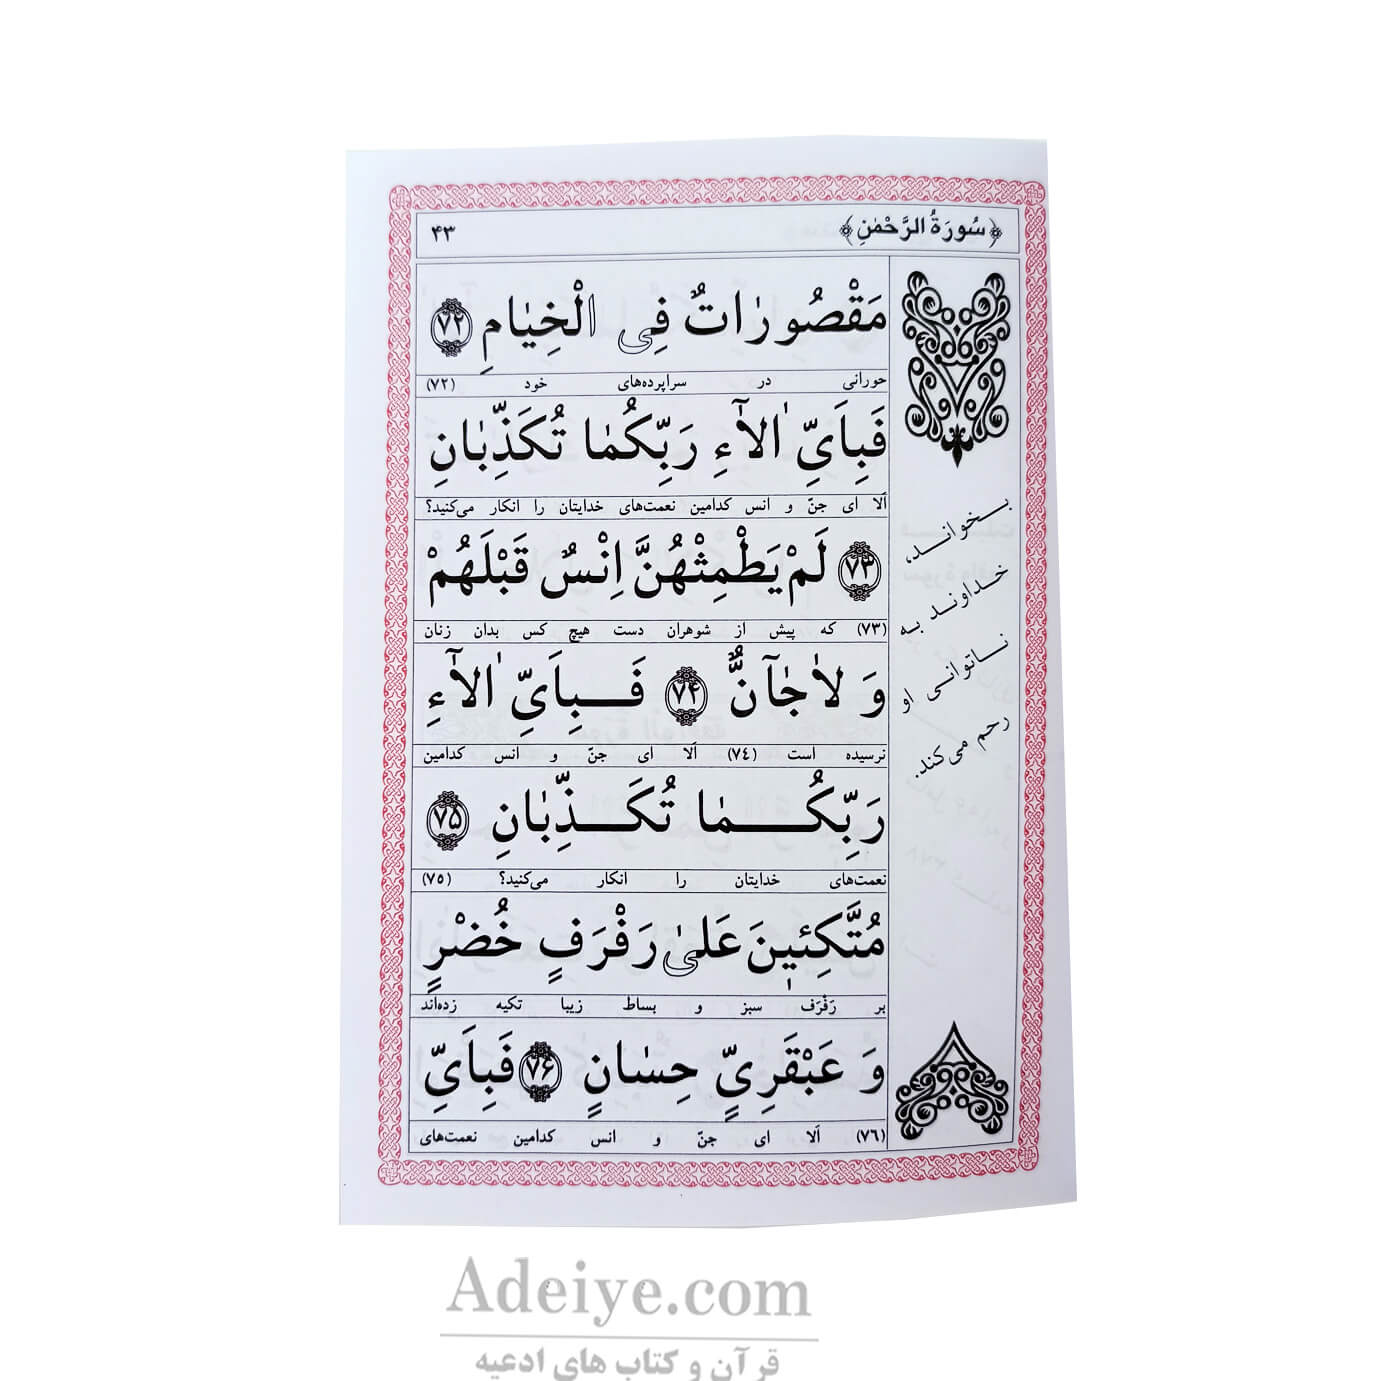 ﴿سُورَةُ الرَّحْمٰنِ﴾ ۴۳
مَقْصُورٰاتٌ فِی الْخِیٰامِ ﴿۷۲﴾
حورانی در سراپرده‌های خود (۷۲)
فَبِاَیِّ اٰلآٰءِ رَبِّکُمٰا تُکَذِّبٰانِ
اَلا ای جنّ و انس کدامین نعمت‌های خدایتان را انکار می‌کنید؟
﴿۷۳﴾ لَمْ یَطْمِثْهُنَّ اِنْسٌ قَبْلَهُمْ
(۷۳) که پیش از شوهران دست هیچ کس بدان زنان
وَ لاٰ جٰٓانٌّ ﴿۷۴﴾ فَبِاَیِّ اٰلآٰءِ
نرسیده است (۷۴) اَلا ای جنّ و انس کدامین
رَبِّکُمٰا تُکَذِّبٰانِ ﴿۷۵﴾
نعمت‌های خدایتان را انکار می‌کنید؟ (۷۵)
مُتَّکِئینَ عَلیٰ رَفْرَفٍ خُضْرٍ
بر رَفْرَف سبز و بساط زیبا تکیه زده‌اند
وَ عَبْقَرِیٍّ حِسٰانٍ ﴿۷۶﴾ فَبِاَیِّ
(۷۶) اَلا ای جنّ و انس کدامین نعمت‌های
بخواند،
خداوند به
ناتوانی او
رحم می‌کند.
Adeiye.com
قرآن و کتاب های ادعیه